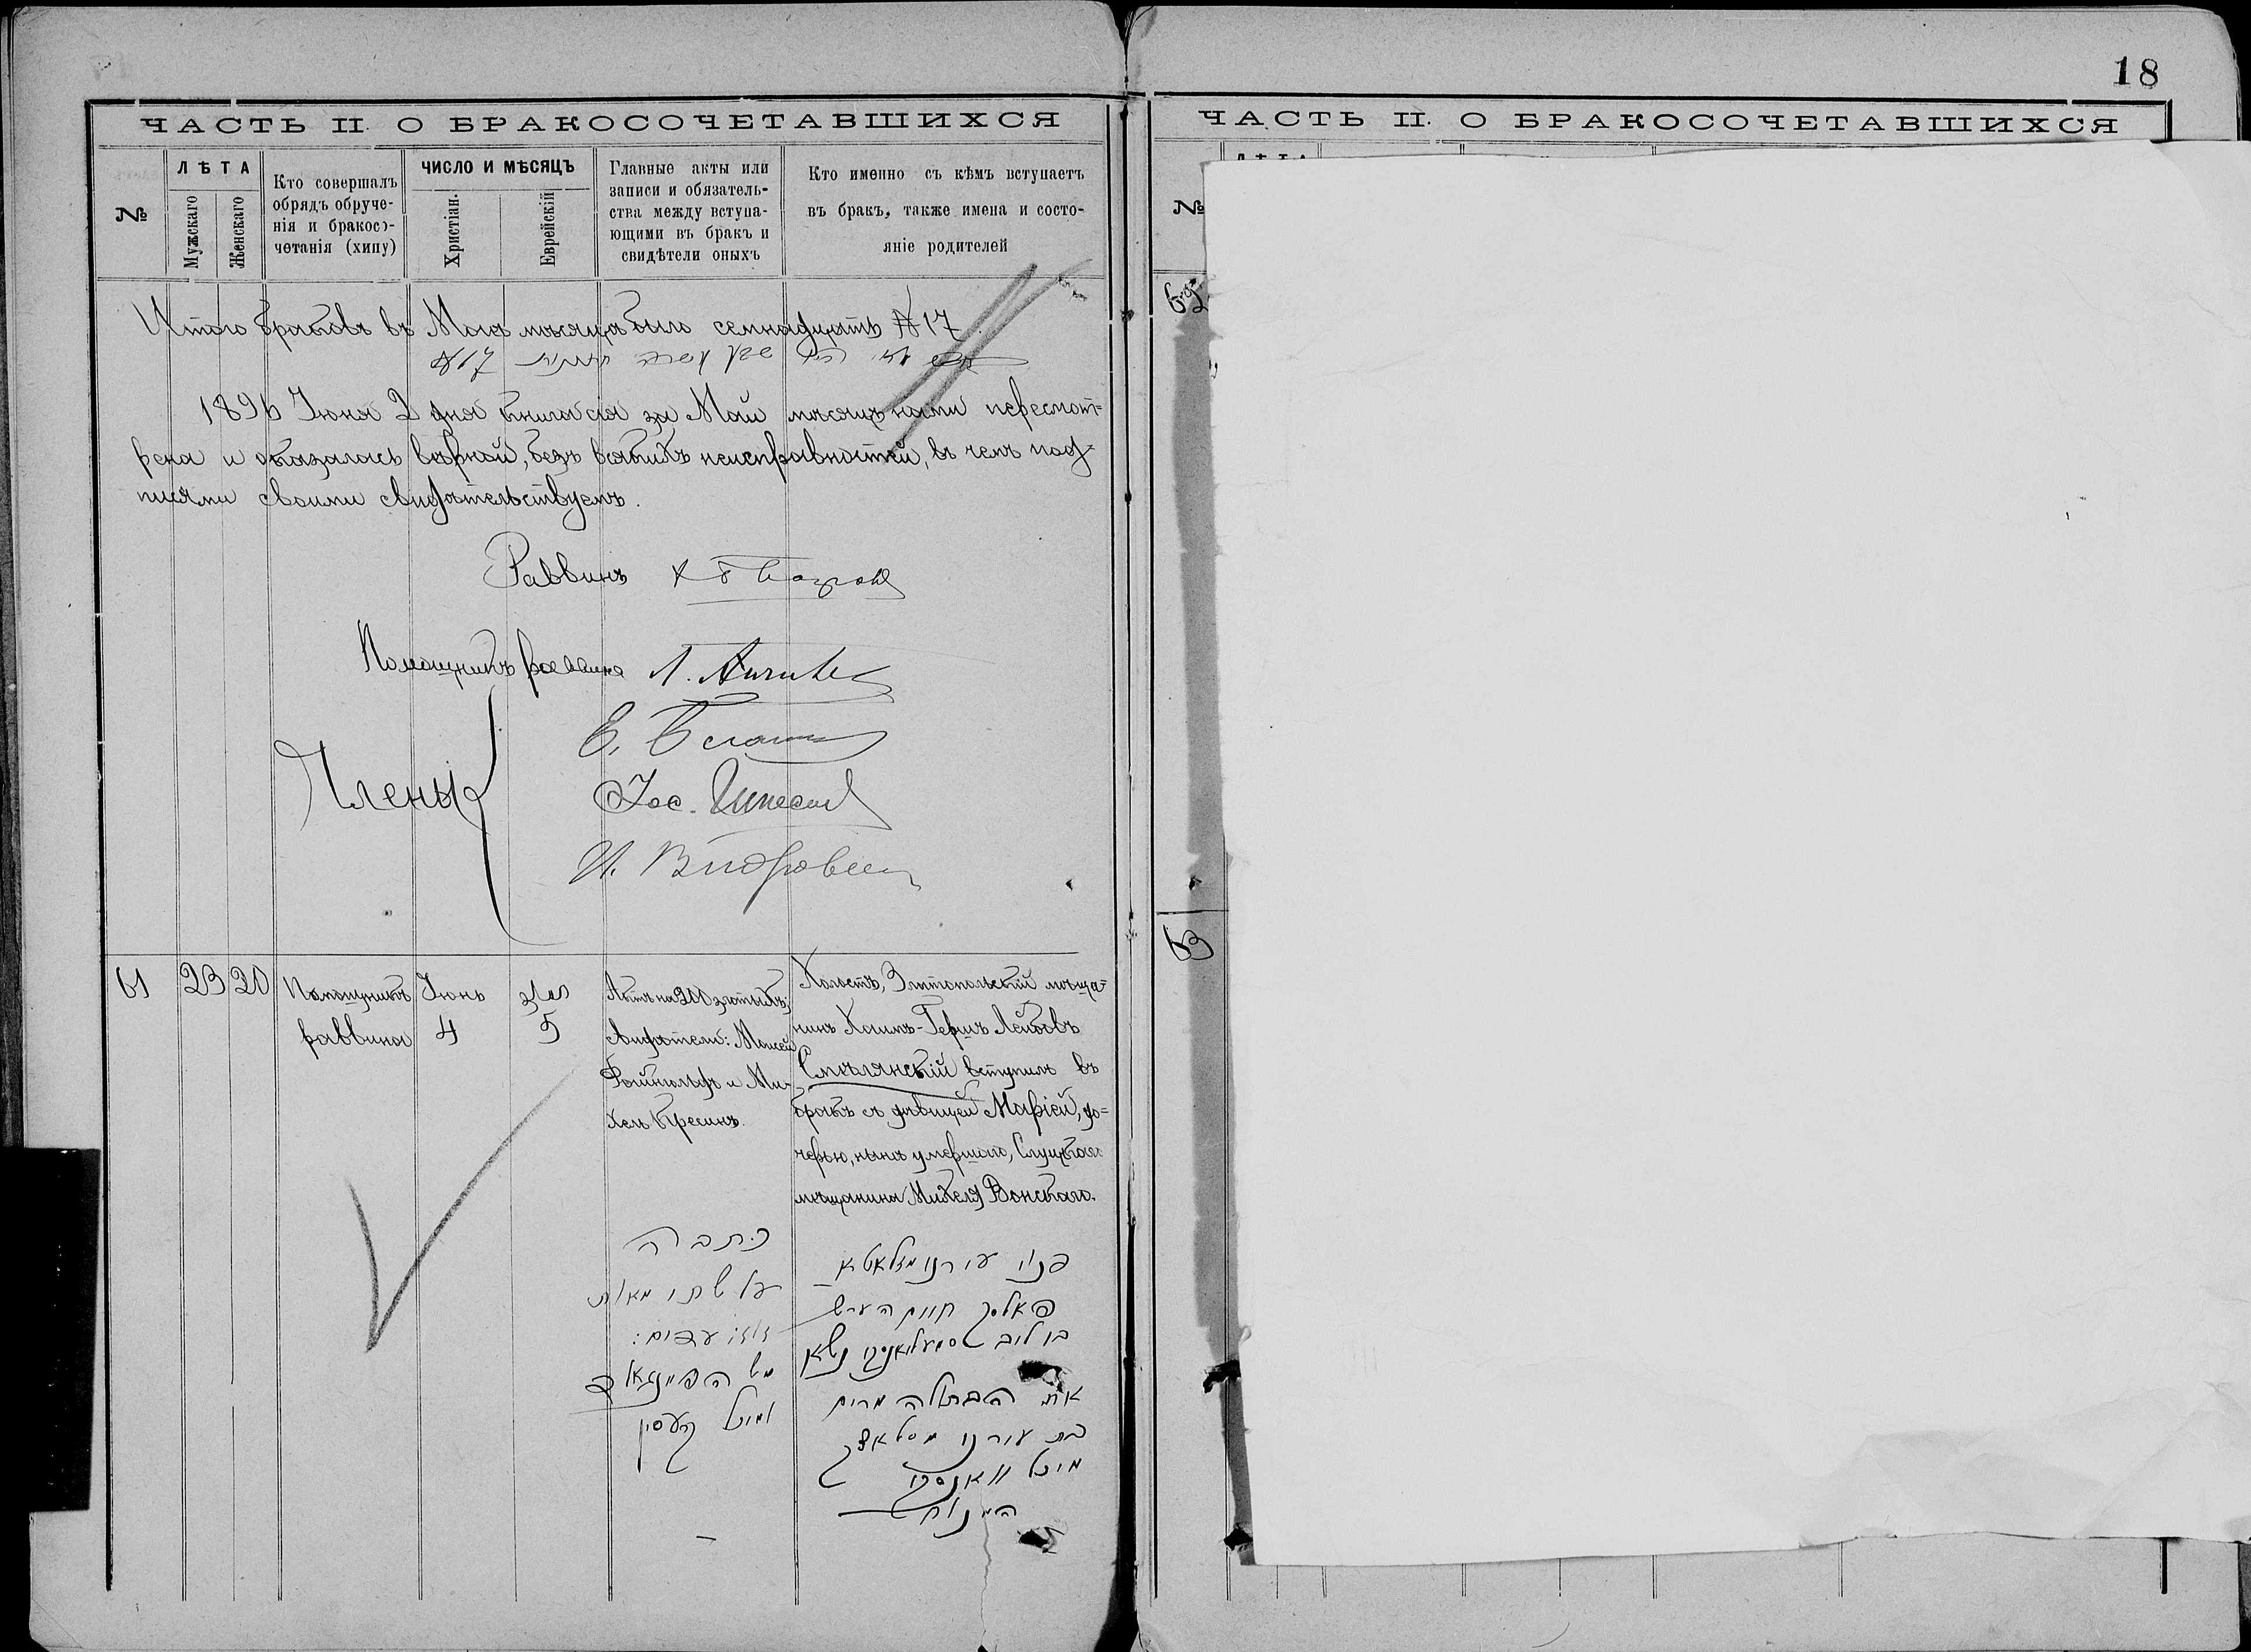 18
ЧАСТЬ II. О БРАКОСОЧЕТАВШИХСЯ
№
ЛѢТА
Мужскаго
Женскаго
Кто совершалъ
обрядъ обруче-
нія и бракосо-
четанія (хипу)
ЧИСЛО И МѢСЯЦЪ
Христіан.
Еврейскій
Главные акты или
записи и обязатель-
ства между вступа-
ющими въ бракъ и
свидѣтели оныхъ
Кто именно съ кѣмъ вступаетъ
въ бракъ, также имена и состо-
яніе родителей
Итого браковъ въ Маѣ мѣсяцѣ было семнадцать № 17
№ 17
1896 Іюня 2 дня книга сія за Май мѣсяцъ нами пересмот=
рена и оказалась вѣрной, безъ всякихъ неисправностей, въ чемъ под=
писями своими свидѣтельствуемъ.
Раввинъ
Помощникъ раввина
Члены
61
23
20
Помощникъ
раввина
Іюнь
4
5
Актъ на 200 злотыхъ;
свидѣтели: Моисей
и Ми-
хель Кресинъ.
Холостъ, Златопольскій мѣща=
нинъ Хаимъ-Гершъ Лейбовъ
Смѣлянскій вступилъ въ
бракъ съ дѣвицей Маріей, до=
черью, нынѣ умершаго, Слуцкаго
мѣщанина Михеля Вонскаго.
כתבה
על שתי מאות
עדים:
משה
ומיכל קרעסין
פנוי עירני מזלאטא
פאלער חיים הערש
בן ליב סמעליאנסקי נשא
את הבתולה מרים
בת עירני מסלאצק
מיכל וואנסקי
המנוח
ЧАСТЬ II. О БРАКОСОЧЕТАВШИХСЯ
№
62
63